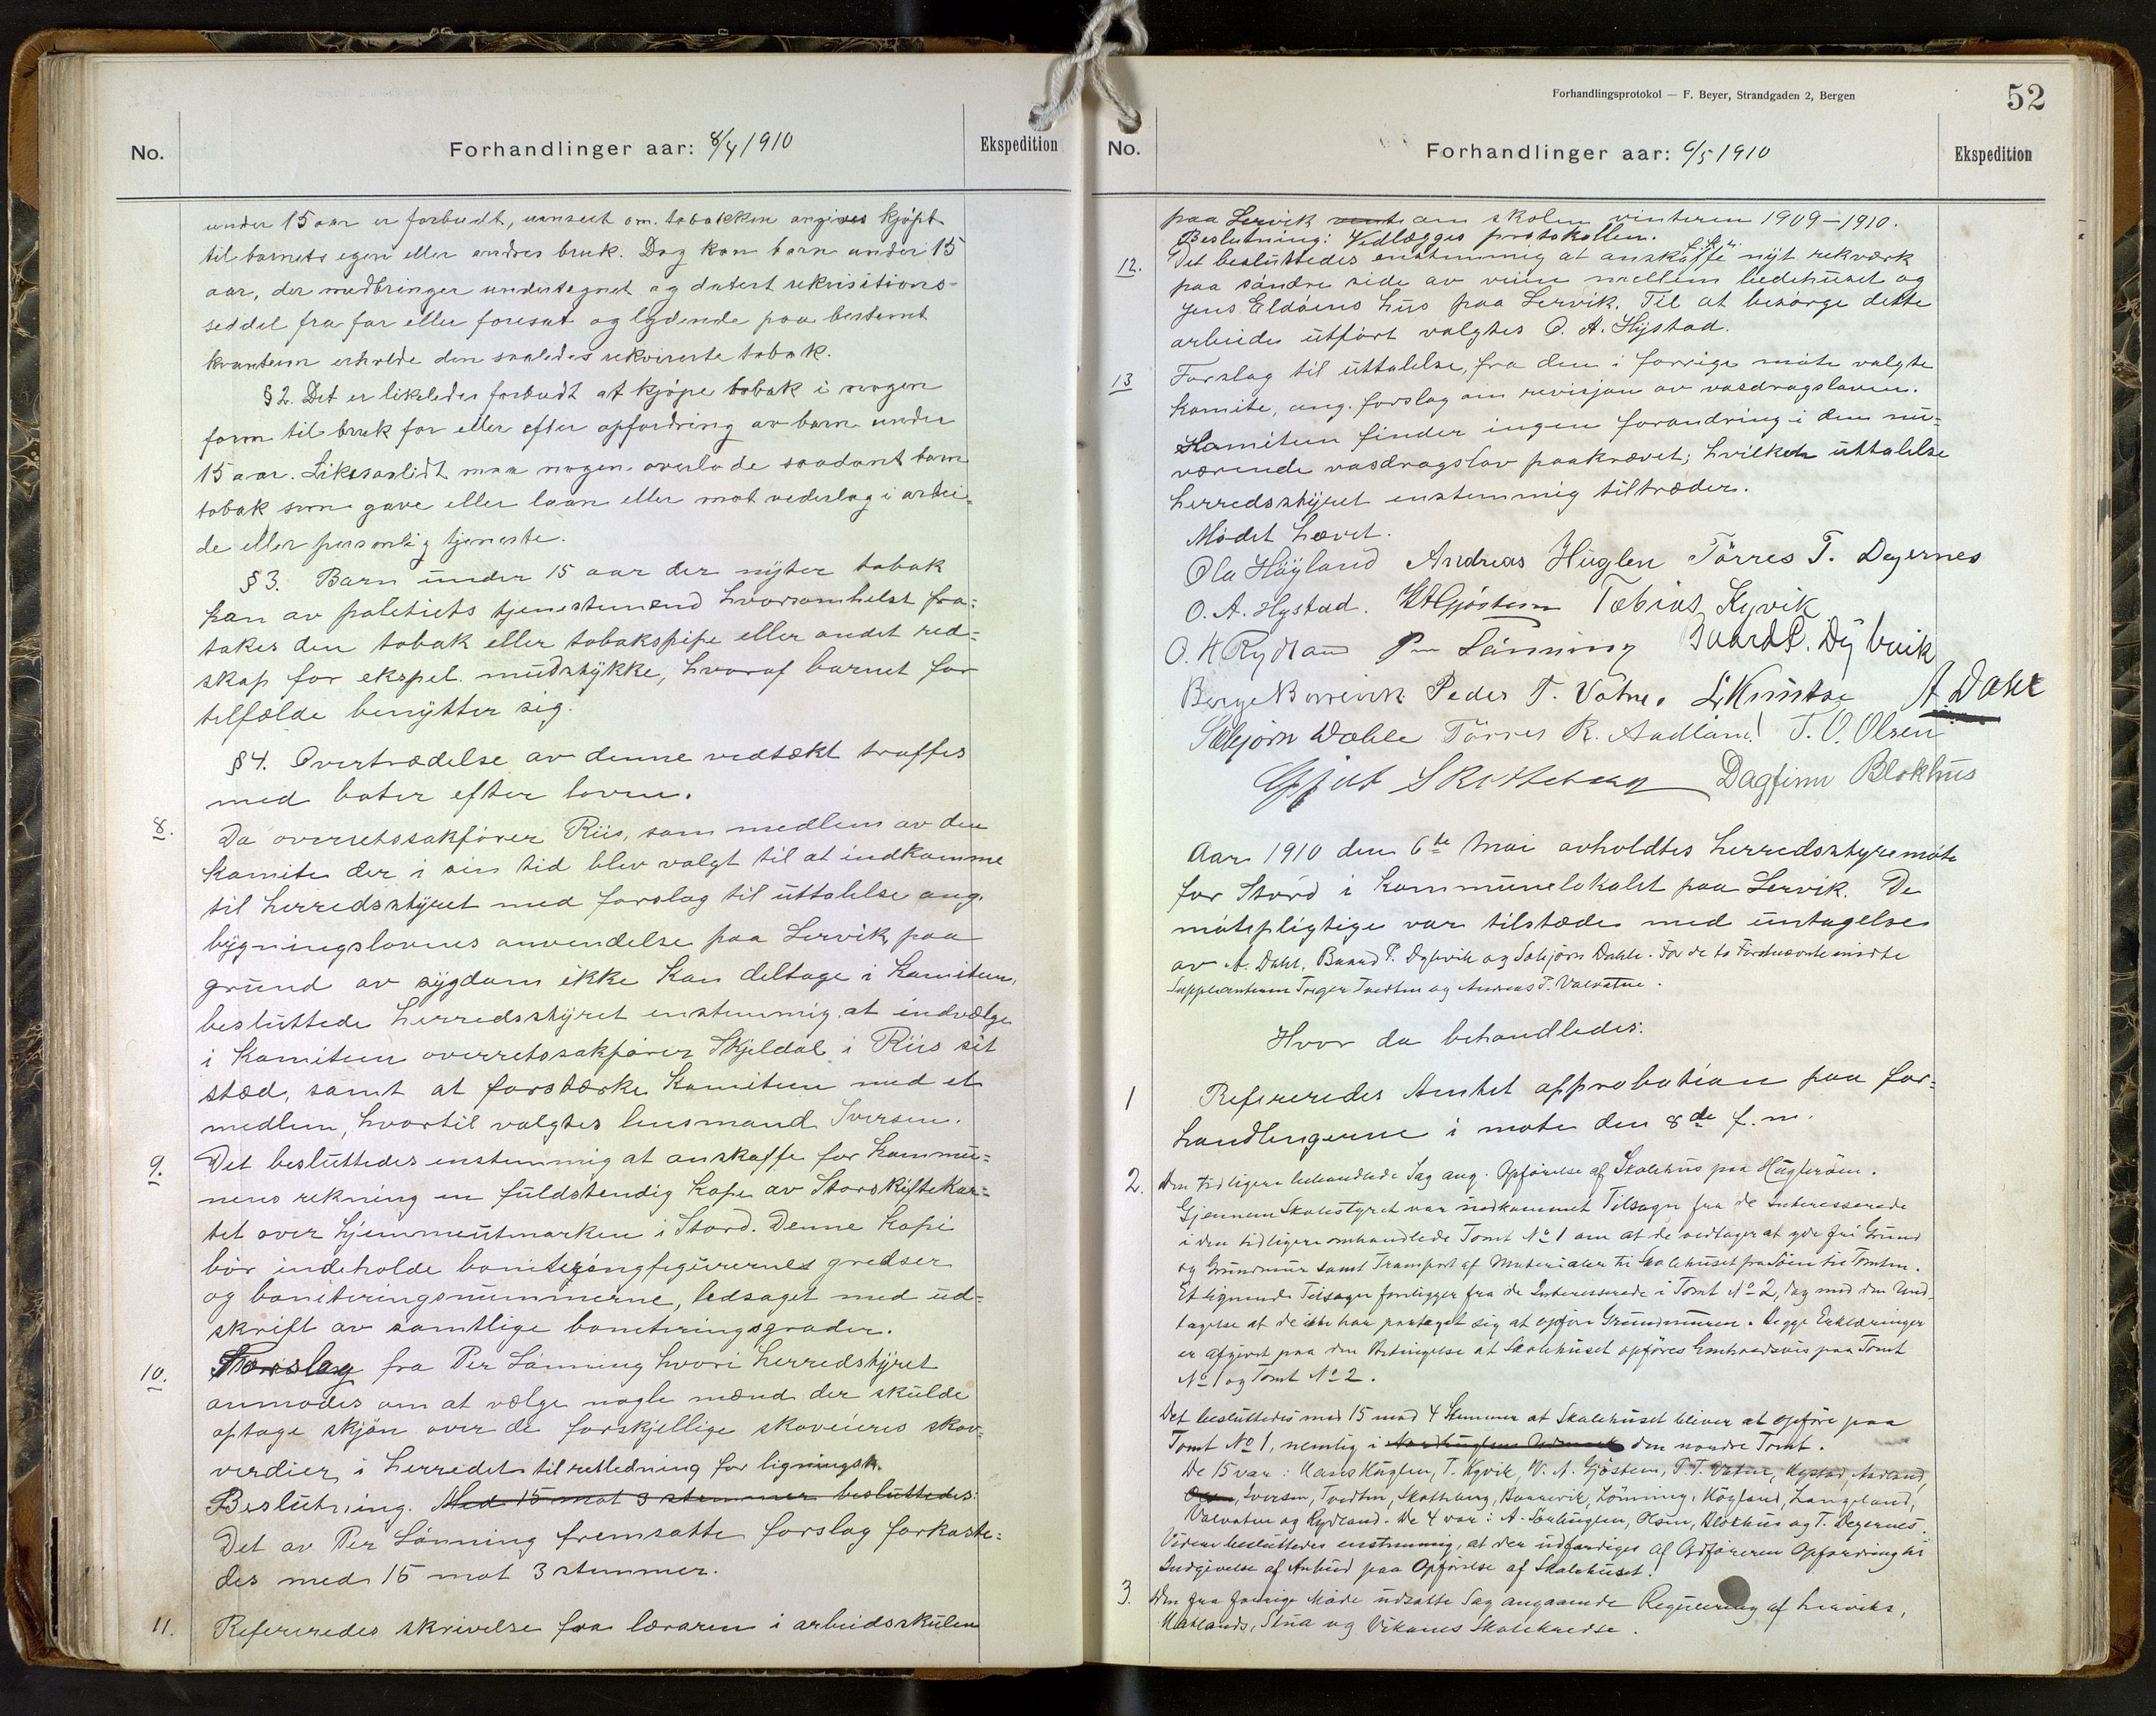 No.
Forhandlinger aar: 8/4 1910
Ekspedition
under 15 aar er forbudt, uanseet om tobakken angives kjøpt
til barnets egen eller andres bruk. Dog kan barn under 15
aar, der medbringer undertegnet og datert rekvisitions-
seddel fra far eller foresat og lydende paa bestemt
kvantum erholde den saaledes rekvirerte tobak.
§ 2. Det er likeledes forbudt at kjøpe tobak i nogen
form til bruk for eller efter opfordring av barn under
15 aar. Likesaalidt maa nogen overlade saadant barn
tobak som gave eller laan eller mot vederlag i arbei-
de eller personlig tjeneste.
§ 3. Barn under 15 aar der nyter tobak
kan av politiets tjenestemænd hvorsomhelst fra=
takes den tobak eller tobakspipe eller andet red=
skap for ekspel. mundstykke, hvoraf barnet for
tilfælde benytter sig.
§ 4. Overtrædelse av denne vedtækt straffes
med bøter efter loven.
8.
Da overretssakfører Riis, som medlem av den
komite der i sin tid blev valgt til at indkomme
til herredsstyret med forslag til uttalelse ang.
bygningslovens anvendelse paa Lervik, paa
grund av sygdom ikke kan deltage i komiteen,
besluttede herredsstyret enstemmig at indvælge
i komiteen overretssakfører Skjeldal i Riis sit
sted, samt at forstærke komiteen med et
medlem, hvortil valgtes lensmand Iversen.
9.
Det besluttedes enstemmig at anskaffe for kommu=
nens rekning en fuldstendig kopi av Storskiftekar=
tet over hjemmeutmarken i Stord. Denne kopi
bør indeholde boniteringfigurernes grendser
og boniteringsnummerne, ledsaget med ud=
skrift av samtlige boniteringsgrader.
10.
Forslag fra Per Lønning hvori herredstyret
anmodes om at vælge nogle mænd der skulde
optage skjøn over de forskjellige skoveieres skov=
verdier i herredet til retledning for ligningsk.
Beslutning. Med 15 mot 3 stemmer besluttedes:
Det av Per Lønning fremsatte forslag forkaste=
des med 15 mot 3 stemmer.
11.
Refereredes skrivelse fra læraren i arbeidsskulen
Forhandlingsprotokol — F. Beyer, Strandgaden 2, Bergen
52
No.
Forhandlinger aar: 6/5 1910
Ekspedition
paa Lervik om skolen vinteren 1909–1910.
Beslutning: Vedlægges protokollen.
12.
Det besluttedes enstemmig at anskaffe nyt rekværk
paa søndre side av veien mellem bedehuset og
Jens Eldøens hus paa Lervik. Til at besørge dette
arbeide utført valgtes O. A. Hystad.
13
Forslag til uttalelse, fra den i forrige møte valgte
komite, ang. forslag om revisjon av vasdragsloven.
Komiteen finder ingen forandring i den nu=
værende vasdragslov paakrævet; hvilken uttalelse
herredsstyret enstemmig tiltræder.
Mødet hævet.
Ola Høyland Andreas Huglen Tørres T. Degernes
O. A. Hystad. Tobias Kyvik
O. H. Rydland Per Lønning Baard P. Dybvik
Børge Borrevik Peder T. Vatne. A Dahl
Sæbjørn Dahle Tørres R. Aadland T. O. Olsen
Skotteberg Dagfinn Blokhus
Aar 1910 den 6te Mai avholdtes herredsstyremøte
for Stord i kommunelokalet paa Lervik. De
møtepligtige var tilstæde med untagelse
av A. Dahl, Baard P. Dybvik og Sæbjørn Dahle. For de to Førstnævnte mødte
Suppleanterne Tveiten og Andreas T. Valvatne.
Hvor da behandledes:
1
Refereredes Amtets approbation paa for=
handlingerne i møte den 8de f. m.
2.
Den tidligere behandlede Sag ang. Opførelse af Skolehus paa Huglerøen.
Gjennem Skolestyret var indkommet Tilsagn fra de Interesserede
i den tidligere omhandlede Tomt No 1 om at de vedtager at yde fri Grund
og Grundmur samt Transport af Materialer til Skolehuset fra Søen til Tomten.
Et lignende Tilsagn foreligger fra de Interesserede i Tomt No 2, dog med den Und-
tagelse at de ikke har paataget sig at opføre Grundmuren. Begge Erklæringer
er afgivet paa den Betingelse at Skolehuset opføres paa Tomt
No 1 og Tomt No 2.
Det besluttedes med 15 mod 4 Stemmer at Skolehuset bliver at opføre paa
Tomt No 1, nemlig i Nordhuglens Udmark den nordre Tomt.
De 15 var: Hans Huglen, T. Kyvik, V. A. Gjøsteen, P. T. Vatne, Hystad, Aadland,
Iversen, Tveiten, Skotteberg, Borrevik, Lønning, Høyland, Langeland,
Valvatne og Rydland. De 4 var: A. Sørhuglen, Olsen, Blokhus og T. Degernes.
Videre besluttedes enstemmig, at der udfærdiges af Ordføreren Opfordring til
Indgivelse af Anbud paa Opførelse af Skolehuset.
3.
Den fra forrige Møde udsatte Sag angaaende Regulering af Lerviks,
Hatlands, Stua og Vikanes Skolekredse.